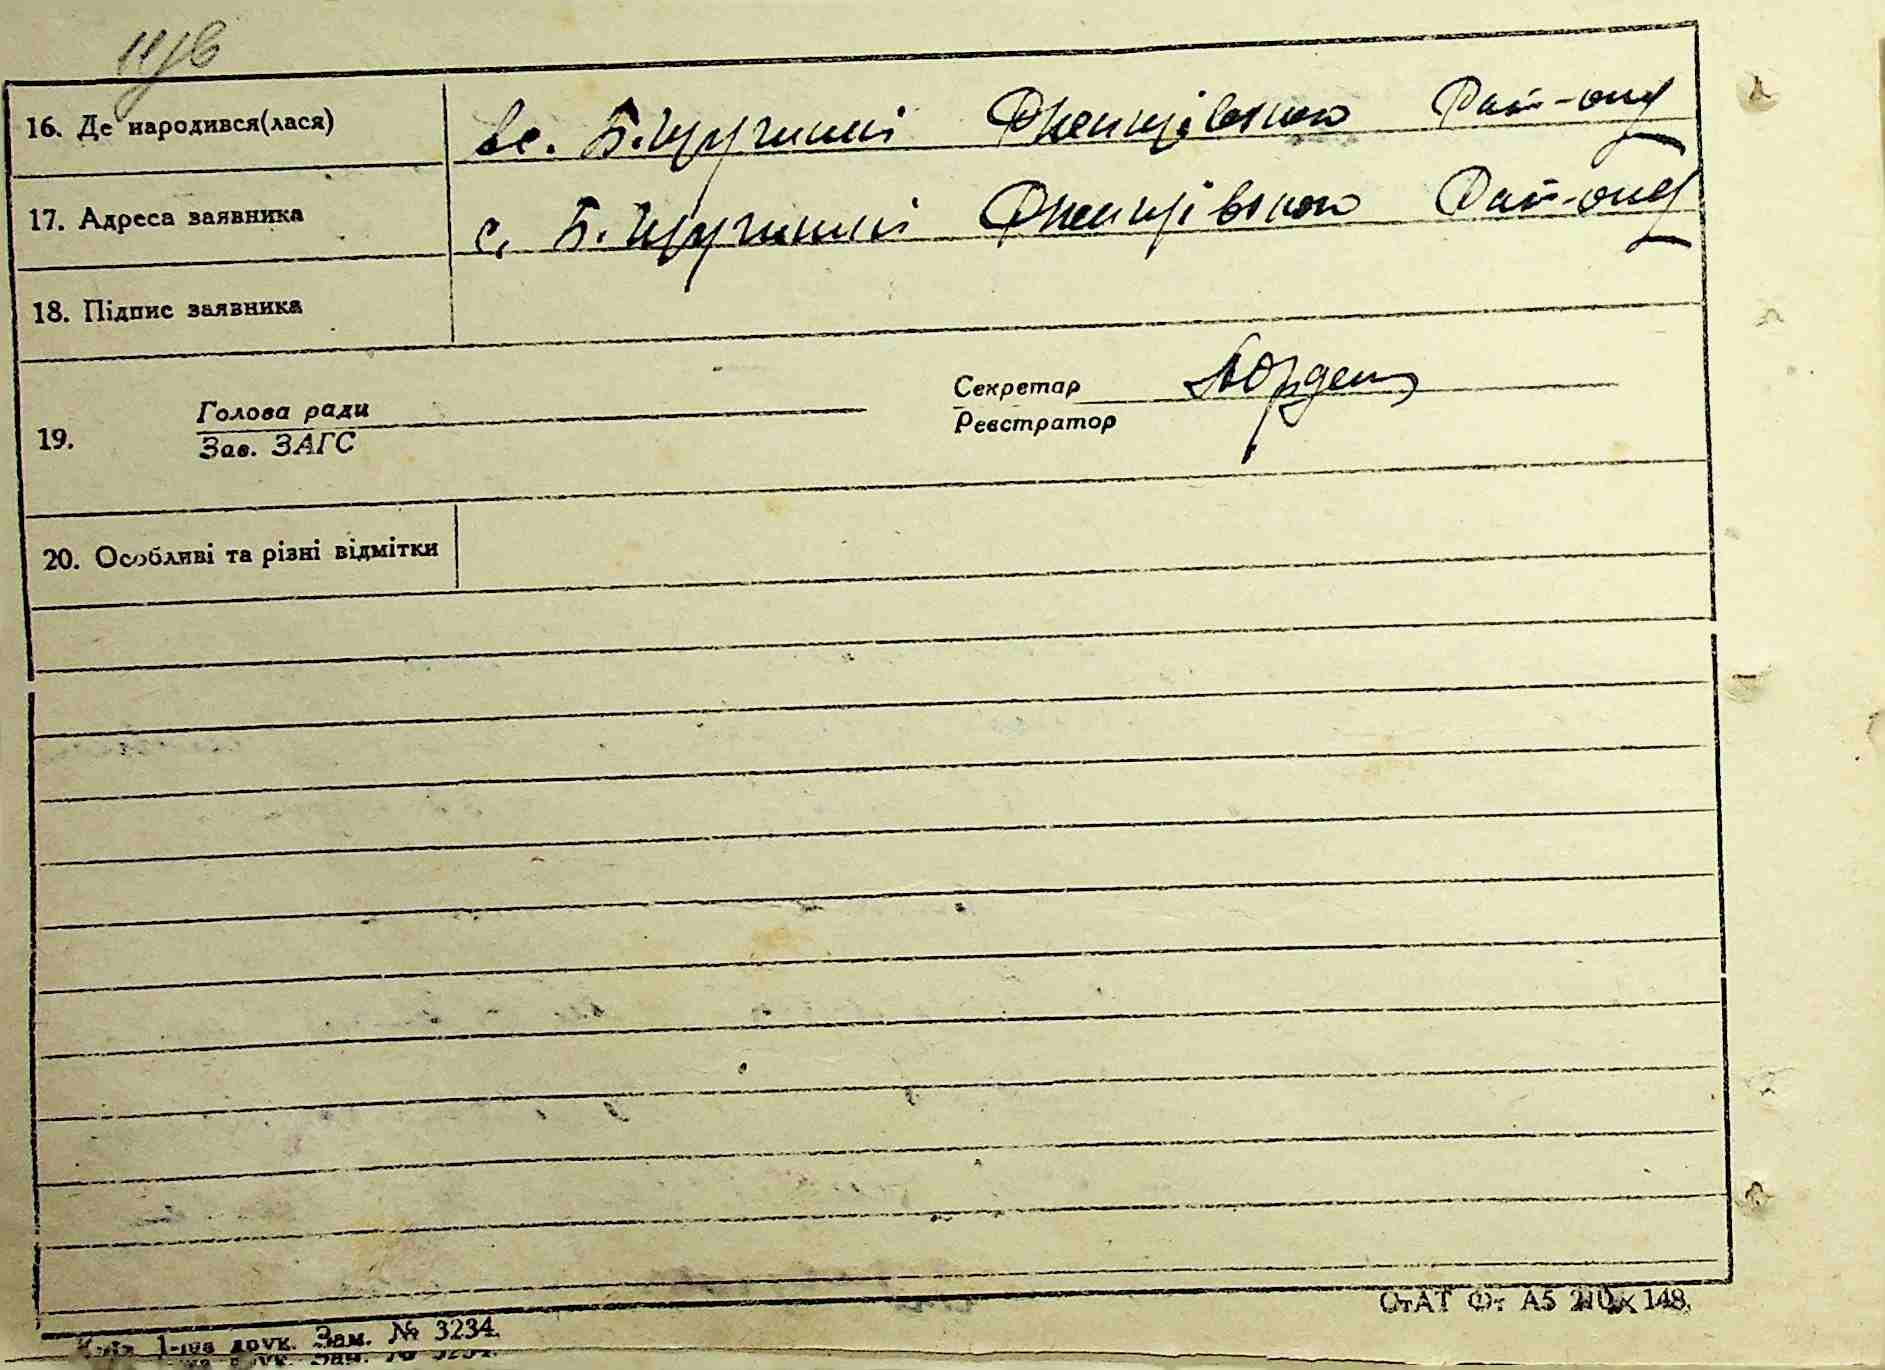 16. Де народився(лася) вс. Б. Крупилі Фженцівского Рай-ону
17. Адреса заявника с. Б. Крупилі Рай-ону
18. Підпис заявника
19. Голова ради Секретар
Зав. ЗАГС Реєстратор
20. Особливі та різні відмітки
1-ша друк. Зам. № 3234.
СтАТ Фт А5 210 × 148.